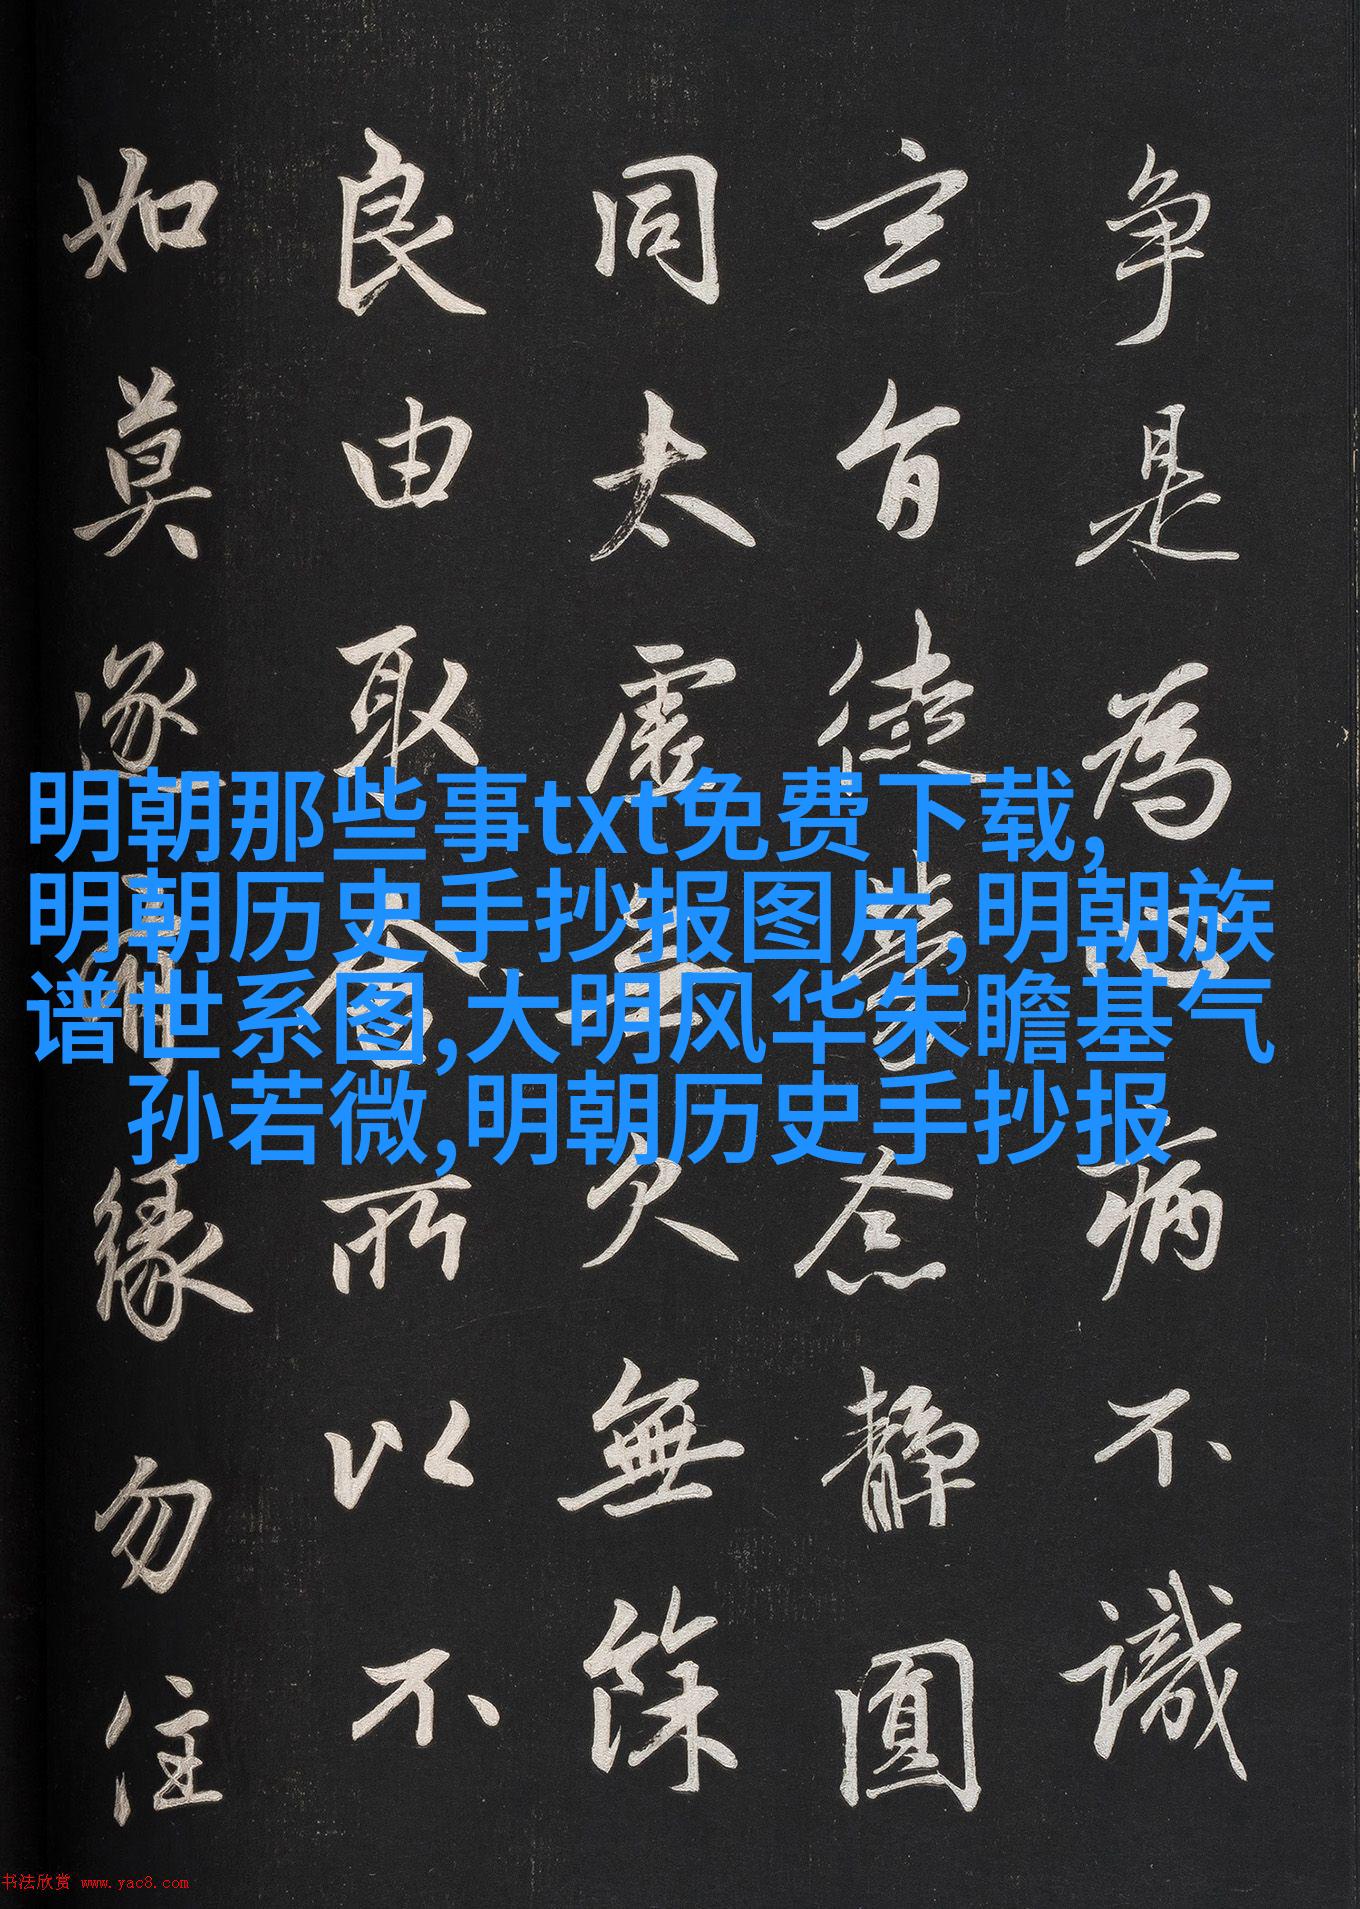 争是為心病不識
玄旨徒勞念靜圓
同太虛無欠無餘
良由取舍所以不
如莫逐有緣勿住
明朝那些事txt免费下载,
明朝历史手抄报图片,明朝族
谱世系图,大明风华朱瞻基气
孙若微,明朝历史手抄报
书法欣赏 www.yac8.com